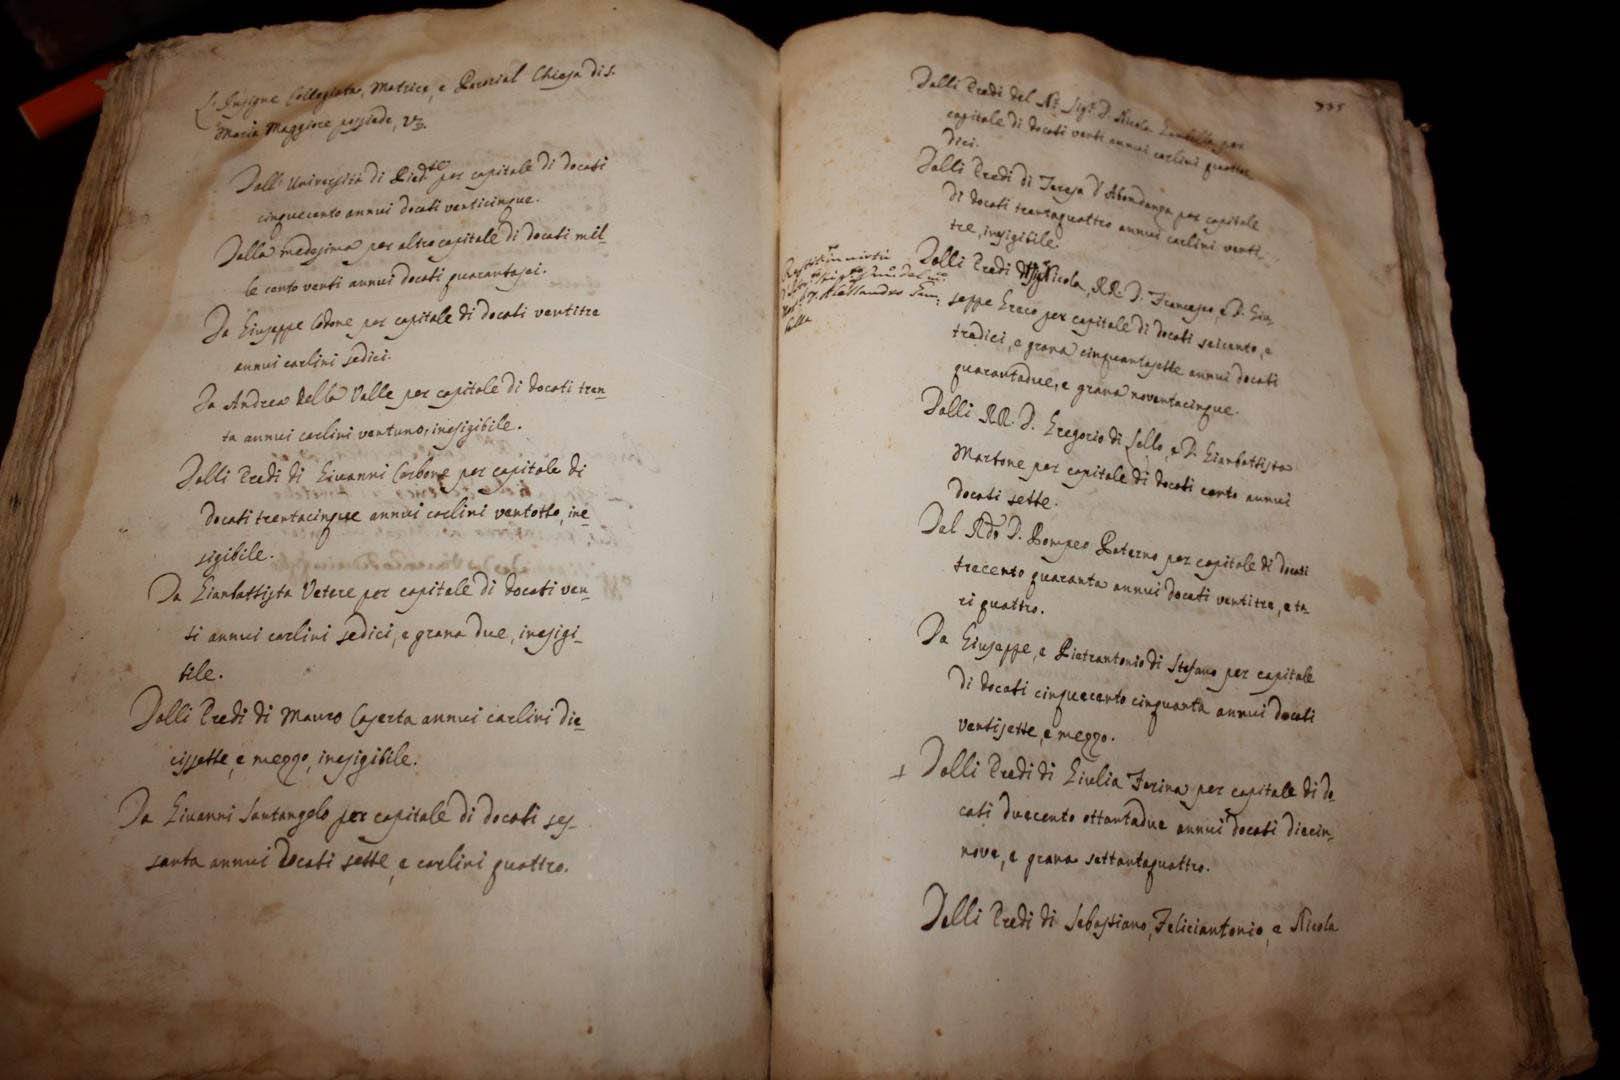 L'Insigne Collegiata, Matrice, e Parocial Chiesa di S.
Maria Maggiore possiede, Vz.
Dall' Università di Pied.te per capitale di docati
cinquecento annui docati venticinque.
Dalla medesima per altro capitale di docati mil-
le cento venti annui docati quarantasei.
Da Giuseppe Codone per capitale di docati ventitre
annui carlini sedici.
Da Andrea della Valle per capitale di docati tren-
ta annui carlini ventuno, inesigibile.
Dalli Eredi di Giovanni Carbone per capitale di
docati trentacinque annui carlini ventotto, ine-
sigibile.
Da Gianbattista Vetere per capitale di docati ven-
ti annui carlini sedici, e grana due, inesigi-
bile.
Dalli Eredi di Mauro Caserta annui carlini die-
cissette, e mezzo, inesigibile.
Da Giuanni Santangelo per capitale di docati ses-
santa annui docati sette, e carlini quattro.
Dalli Eredi del Sig.r D. Nicola per
capitale di docati venti annui carlini quattor-
dici.
Dalli Eredi di Teresa d'Abondanza per capitale
di docati trentaquattro annui carlini venti-
tre, inesigibile.
Dalli Eredi Nicola, RR. D. Francesco, e D. Giu-
seppe Greco per capitale di docati seicento, e
tredici, e grana cinquantasette annui docati
quarantadue, e grana novantacinque.
in virtù
del
D. Alessandro
Dalli RR. D. Gregorio di Lello, e D. Gianbattista
Martone per capitale di docati cento annui
docati sette.
Dal Rdo D. Pompeo Paterno per capitale di docati
trecento quaranta annui docati ventitre, e ta-
ri quattro.
Da Giuseppe, e Pietrantonio di Stefano per capitale
di docati cinquecento cinquanta annui docati
ventisette, e mezzo.
Dalli Eredi di Giulia Farina per capitale di do-
cati duecento ottantadue annui docati diecin-
nove, e grana settantaquattro.
Dalli Eredi di Sebastiano, Feliciantonio, e Nicola